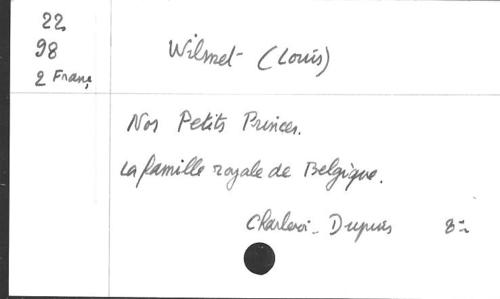 22
98
2 Franç
Wilmet (Louis)
Nos Petits Princes.
La famille royale de Belgique.
Charleroi - Dupuis 8°